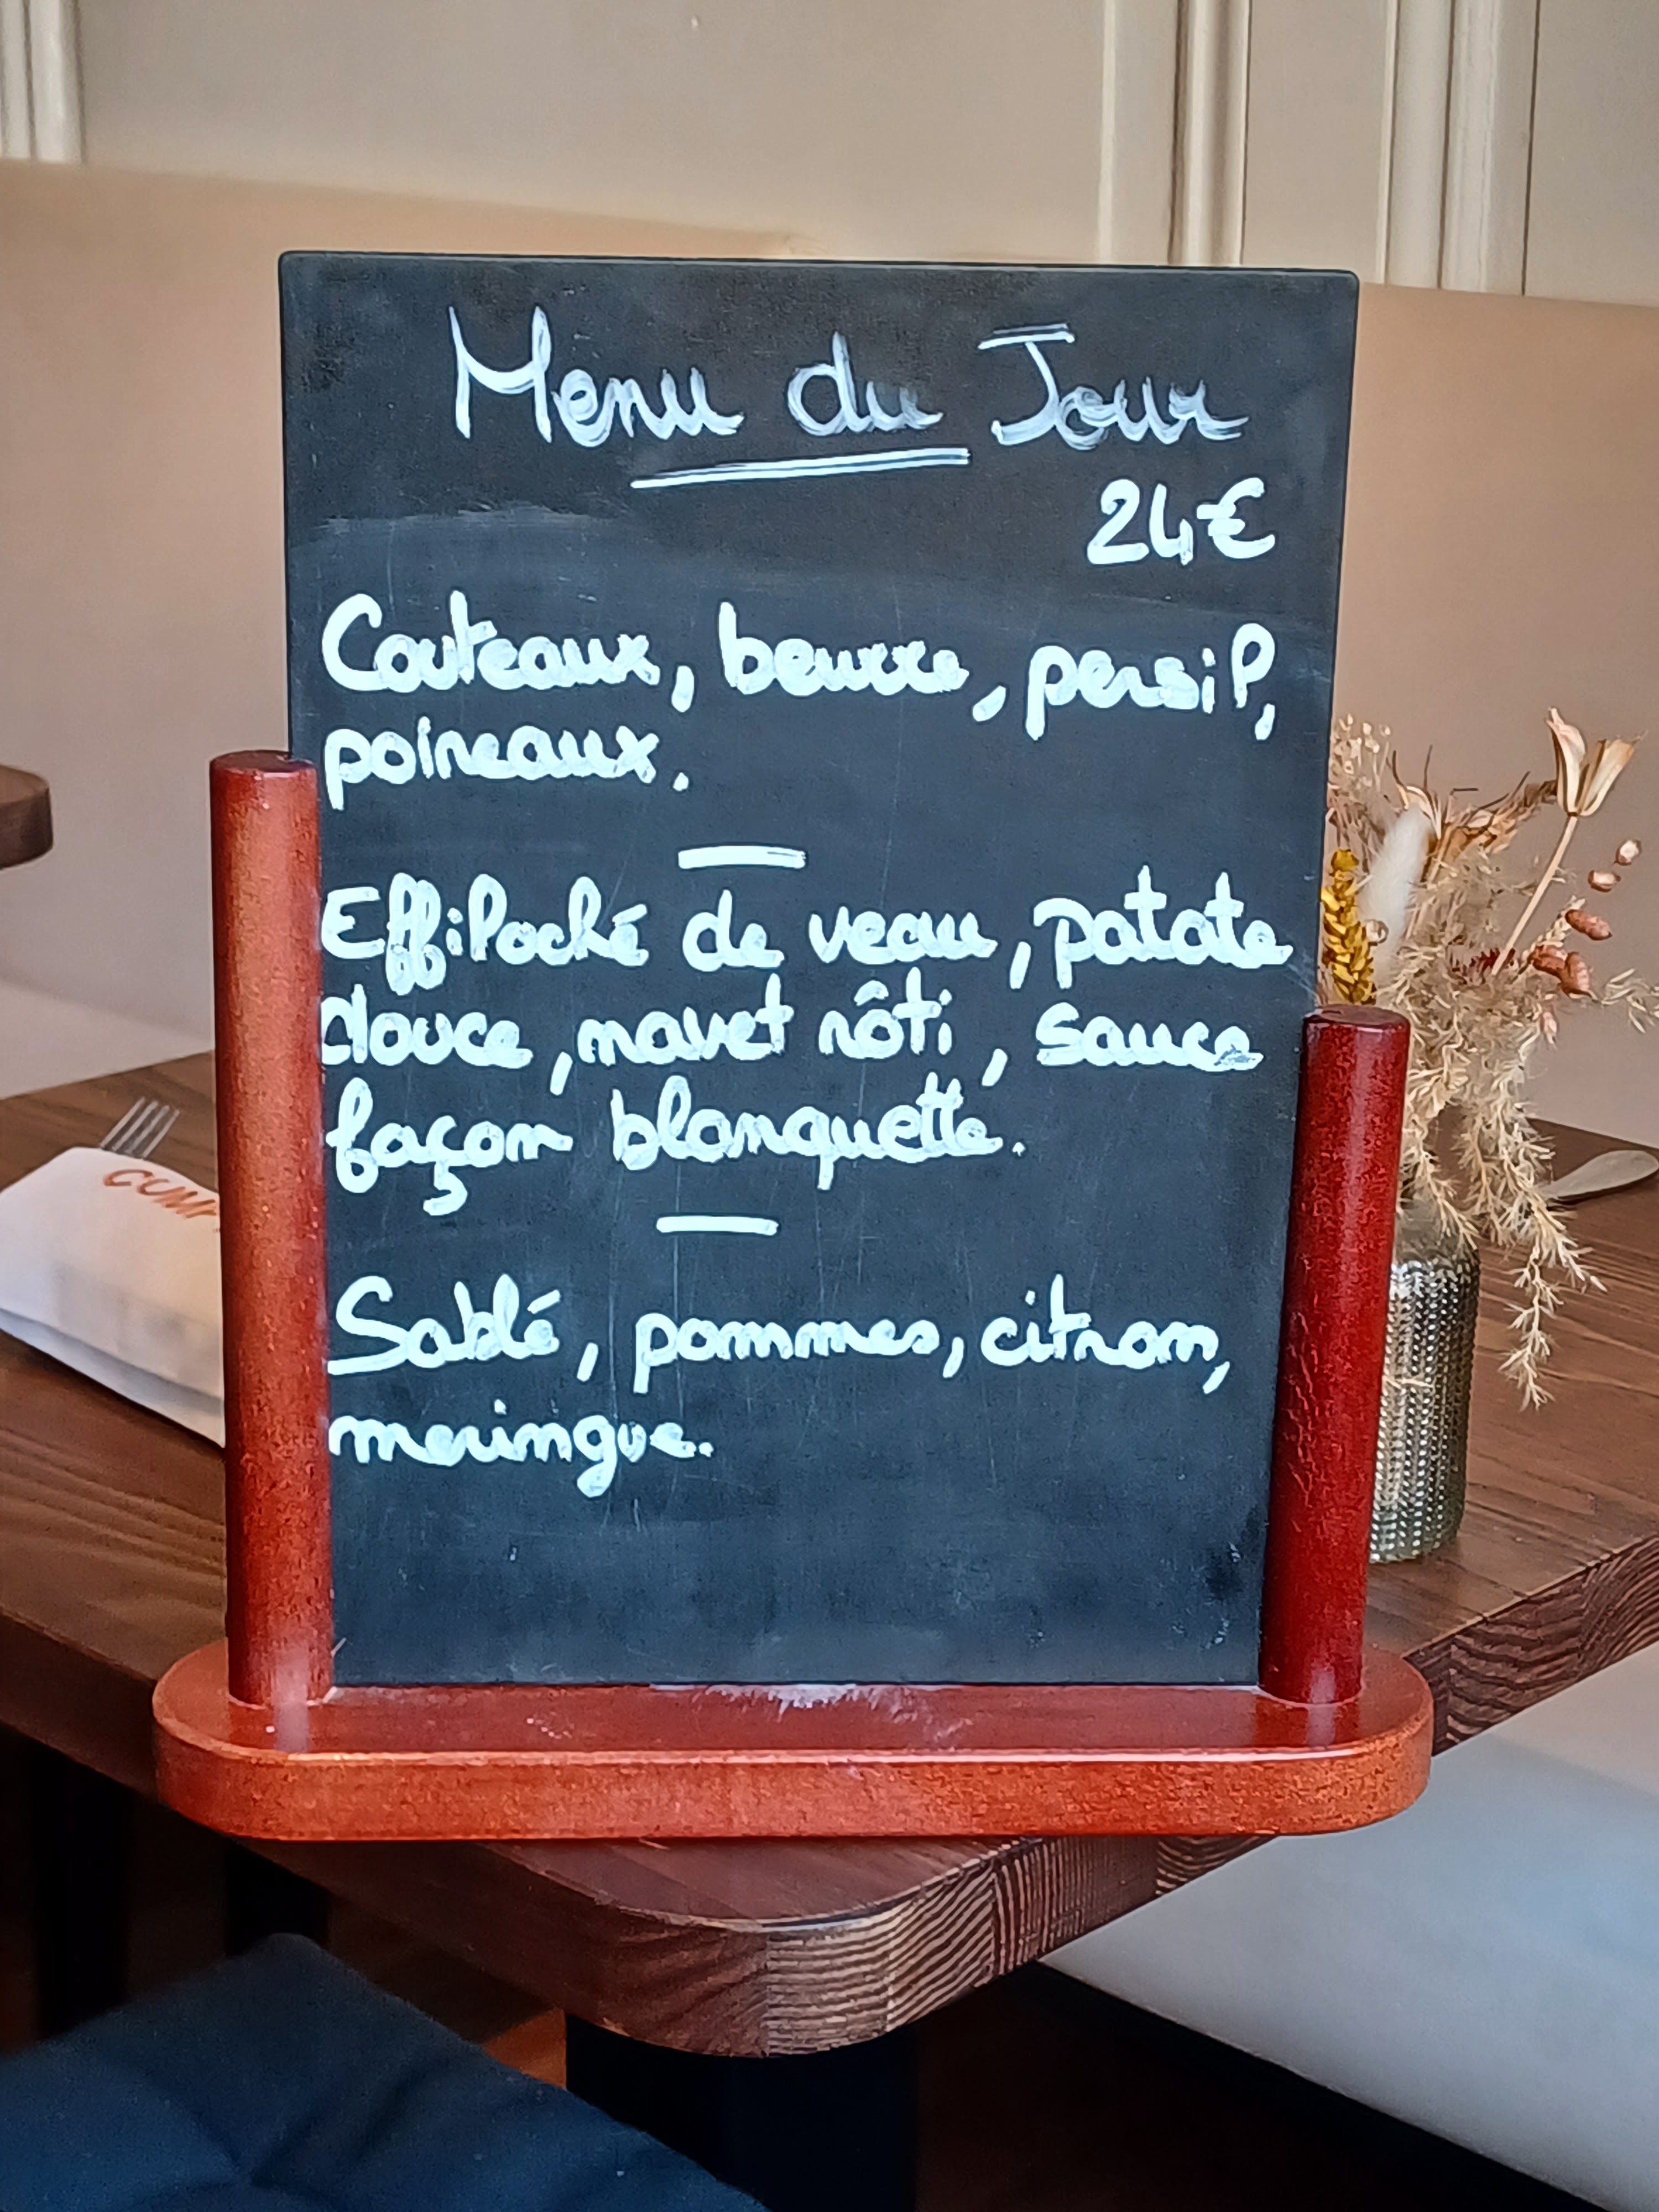 Menu du Jour
24€
Couteaux, beurre, persil,
poireaux.
Effiloché de veau, patate
douce, navet rôti, sauce
façon blanquette.
Sablé, pommes, citron,
meringue.